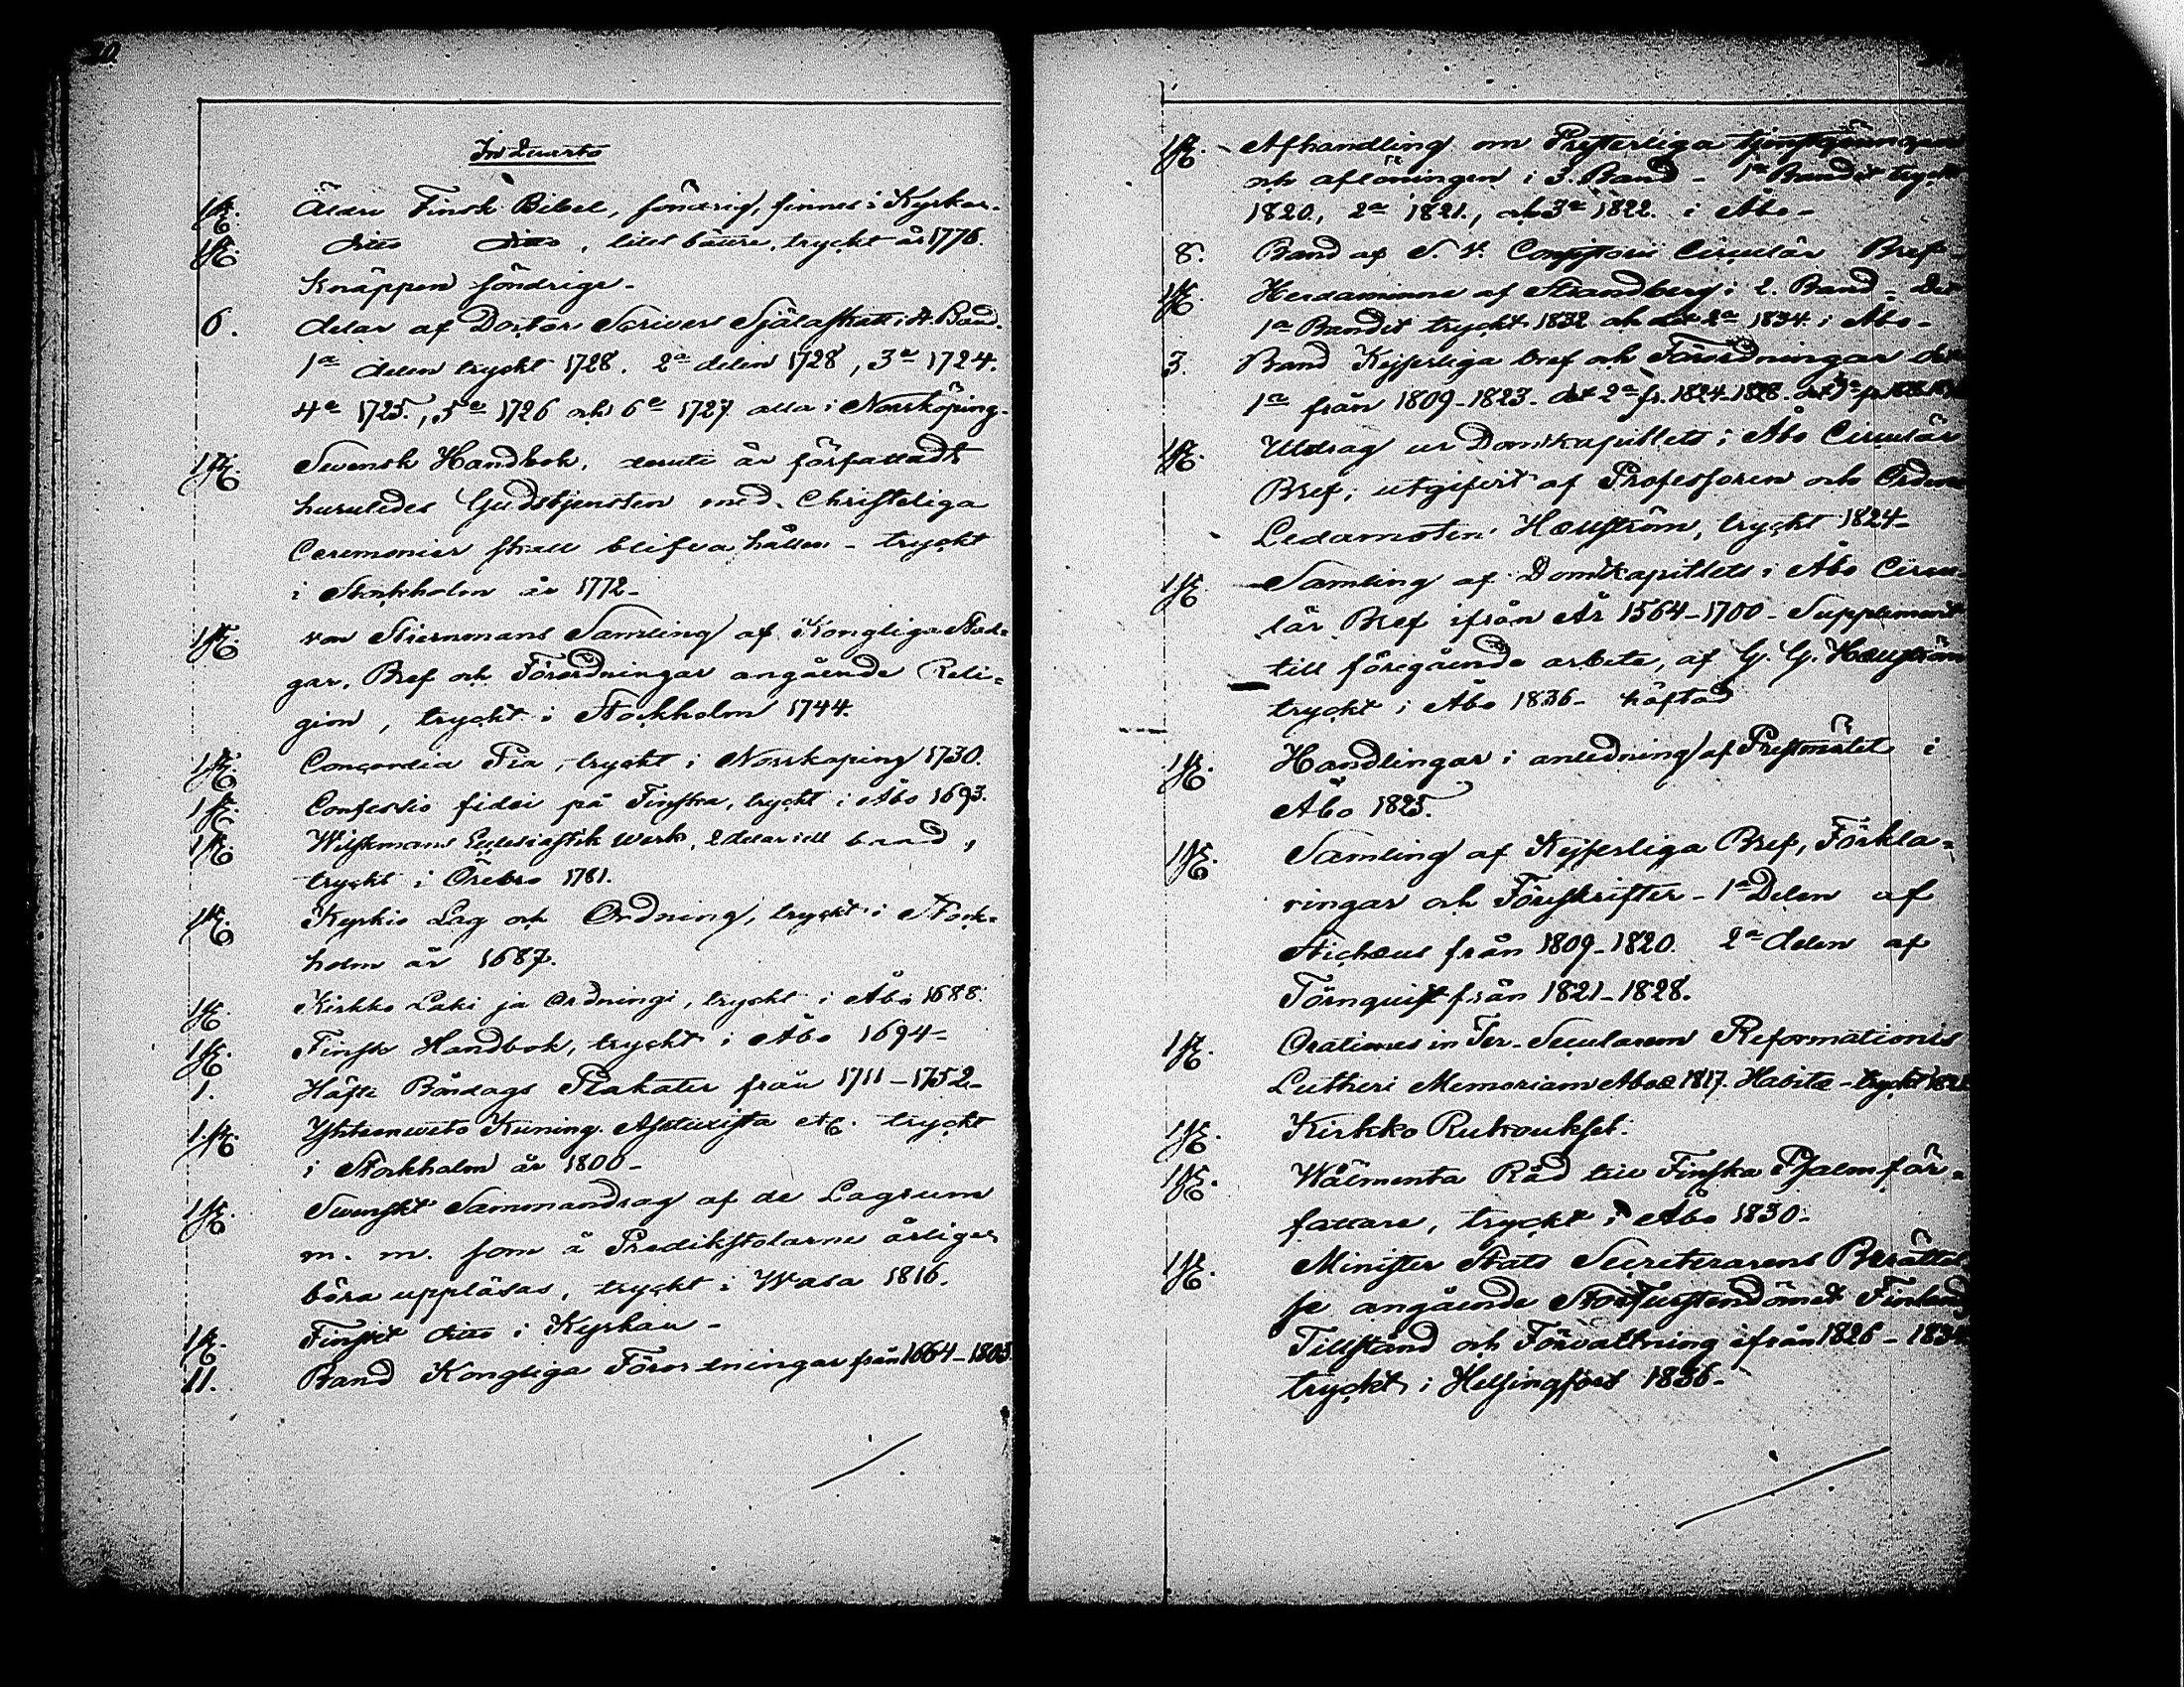 20.
In Quarto
1 st. Äldre Finsk Bibel, söndrig, finnes i Kyrkan.
1 st. ditto ditto, litet bättre, tryckt år 1776.
Knäppen söndriga.
6. delar af Doctor Scrivers Själaskatt i 4. Band.
1a delen tryckt 1728. 2a delen 1728, 3e 1724.
4e 1725., 5e 1726 och 6e 1727 alla i Norrköping.
1 st. Swensk Handbok, deruti är författadt
huruledes Gudstjensten med Christeliga
Ceremonier skall blifva hållen - tryckt
i Stockholm år 1772-
1 st. von Stiernmans Samling af Kongliga Stad=
gar, Bref och Förordningar angående Reli=
gion, tryckt i Stockholm 1744.
1 st. Concordia Pia, tryckt i Norrkøping 1730.
1 st. Confessio fidei på Finska, tryckt i Åbo 1693.
1 st. Wilskmans Eclesiastik werk, 2 delar i ett band,
tryckt i Örebro 1781.
1 st. Kyrkio Lag och Ordning, tryckt i Stock=
holm år 1687.
1 st. Kirkko Laki ja Ordningi, tryckt i Åbo 1688.
1 st. Finsk Handbok, tryckt i Åbo 1694-
1. Häfte Böndags Plakater från 1711-1752-
1 st. Kuning. etc. tryckt
i Stockholm år 1800-
1 st. Swenskt Sammandrag af de Lagrum
m. m. som å Predikstolarne årligen
böra uppläsas, tryckt i Wasa 1816.
1 st. Finskt ditto i Kyrkan-
11. Band Kongliga Förordningar från 1664-1803.
1 st. Afhandling om Presterliga tjenstgöringen
och aflöningen i 3. Band - 1a Bandet tryckt
1820, 2a 1821., och 3e 1822. i Åbo-
8. Band af S. V. Consistorii Circulär Bref-
1 st. Herdaminne af Strandberg i 2. Band - Det
1a Bandet tryckt 1832 och det 2a 1834 i Åbo-
3. Band Kejserliga bref och Förordningar det
1a från 1809-1823. det 2a fr. 1824-1828. det 3e fr.
1 st. Utdrag ur Domkapitlets i Åbo Circulär
Bref, utgifvit af Professoren och Ordens
Ledamoten Hællström, tryckt 1824-
1 st. Samling af Domkapitlets i Åbo Circu-
lär Bref ifrån År 1564-1700 - Supplement
till föregående arbete, af G. G. Hællström
tryckt i Åbo 1836- häftad
1 st. Handlingar i anledning af Prestmötet i
Åbo 1825.
1 st. Samling af Kejserliga Bref, Förkla=
ringar och Föreskrifter - 1a Delen af
Stichæus från 1809-1820. 2a delen af
Törnquist från 1821-1828.
1 st. Orationes in Ter-Secularem Reformationis
Lutheri Memoriam Aboæ 1817. Habitæ - tryckt
1 st. Kirkko Rukouxset.
1 st. Wälmenta Råd till Finska Psalmför=
fattare, tryckt i Åbo 1830-
1 st. Minister Stats Secreterarens Berättel-
se angående Storfurstendömet Finlands
Tillstånd och Förvaltning ifrån 1826 - 1834
tryckt i Helsingfors 1836-